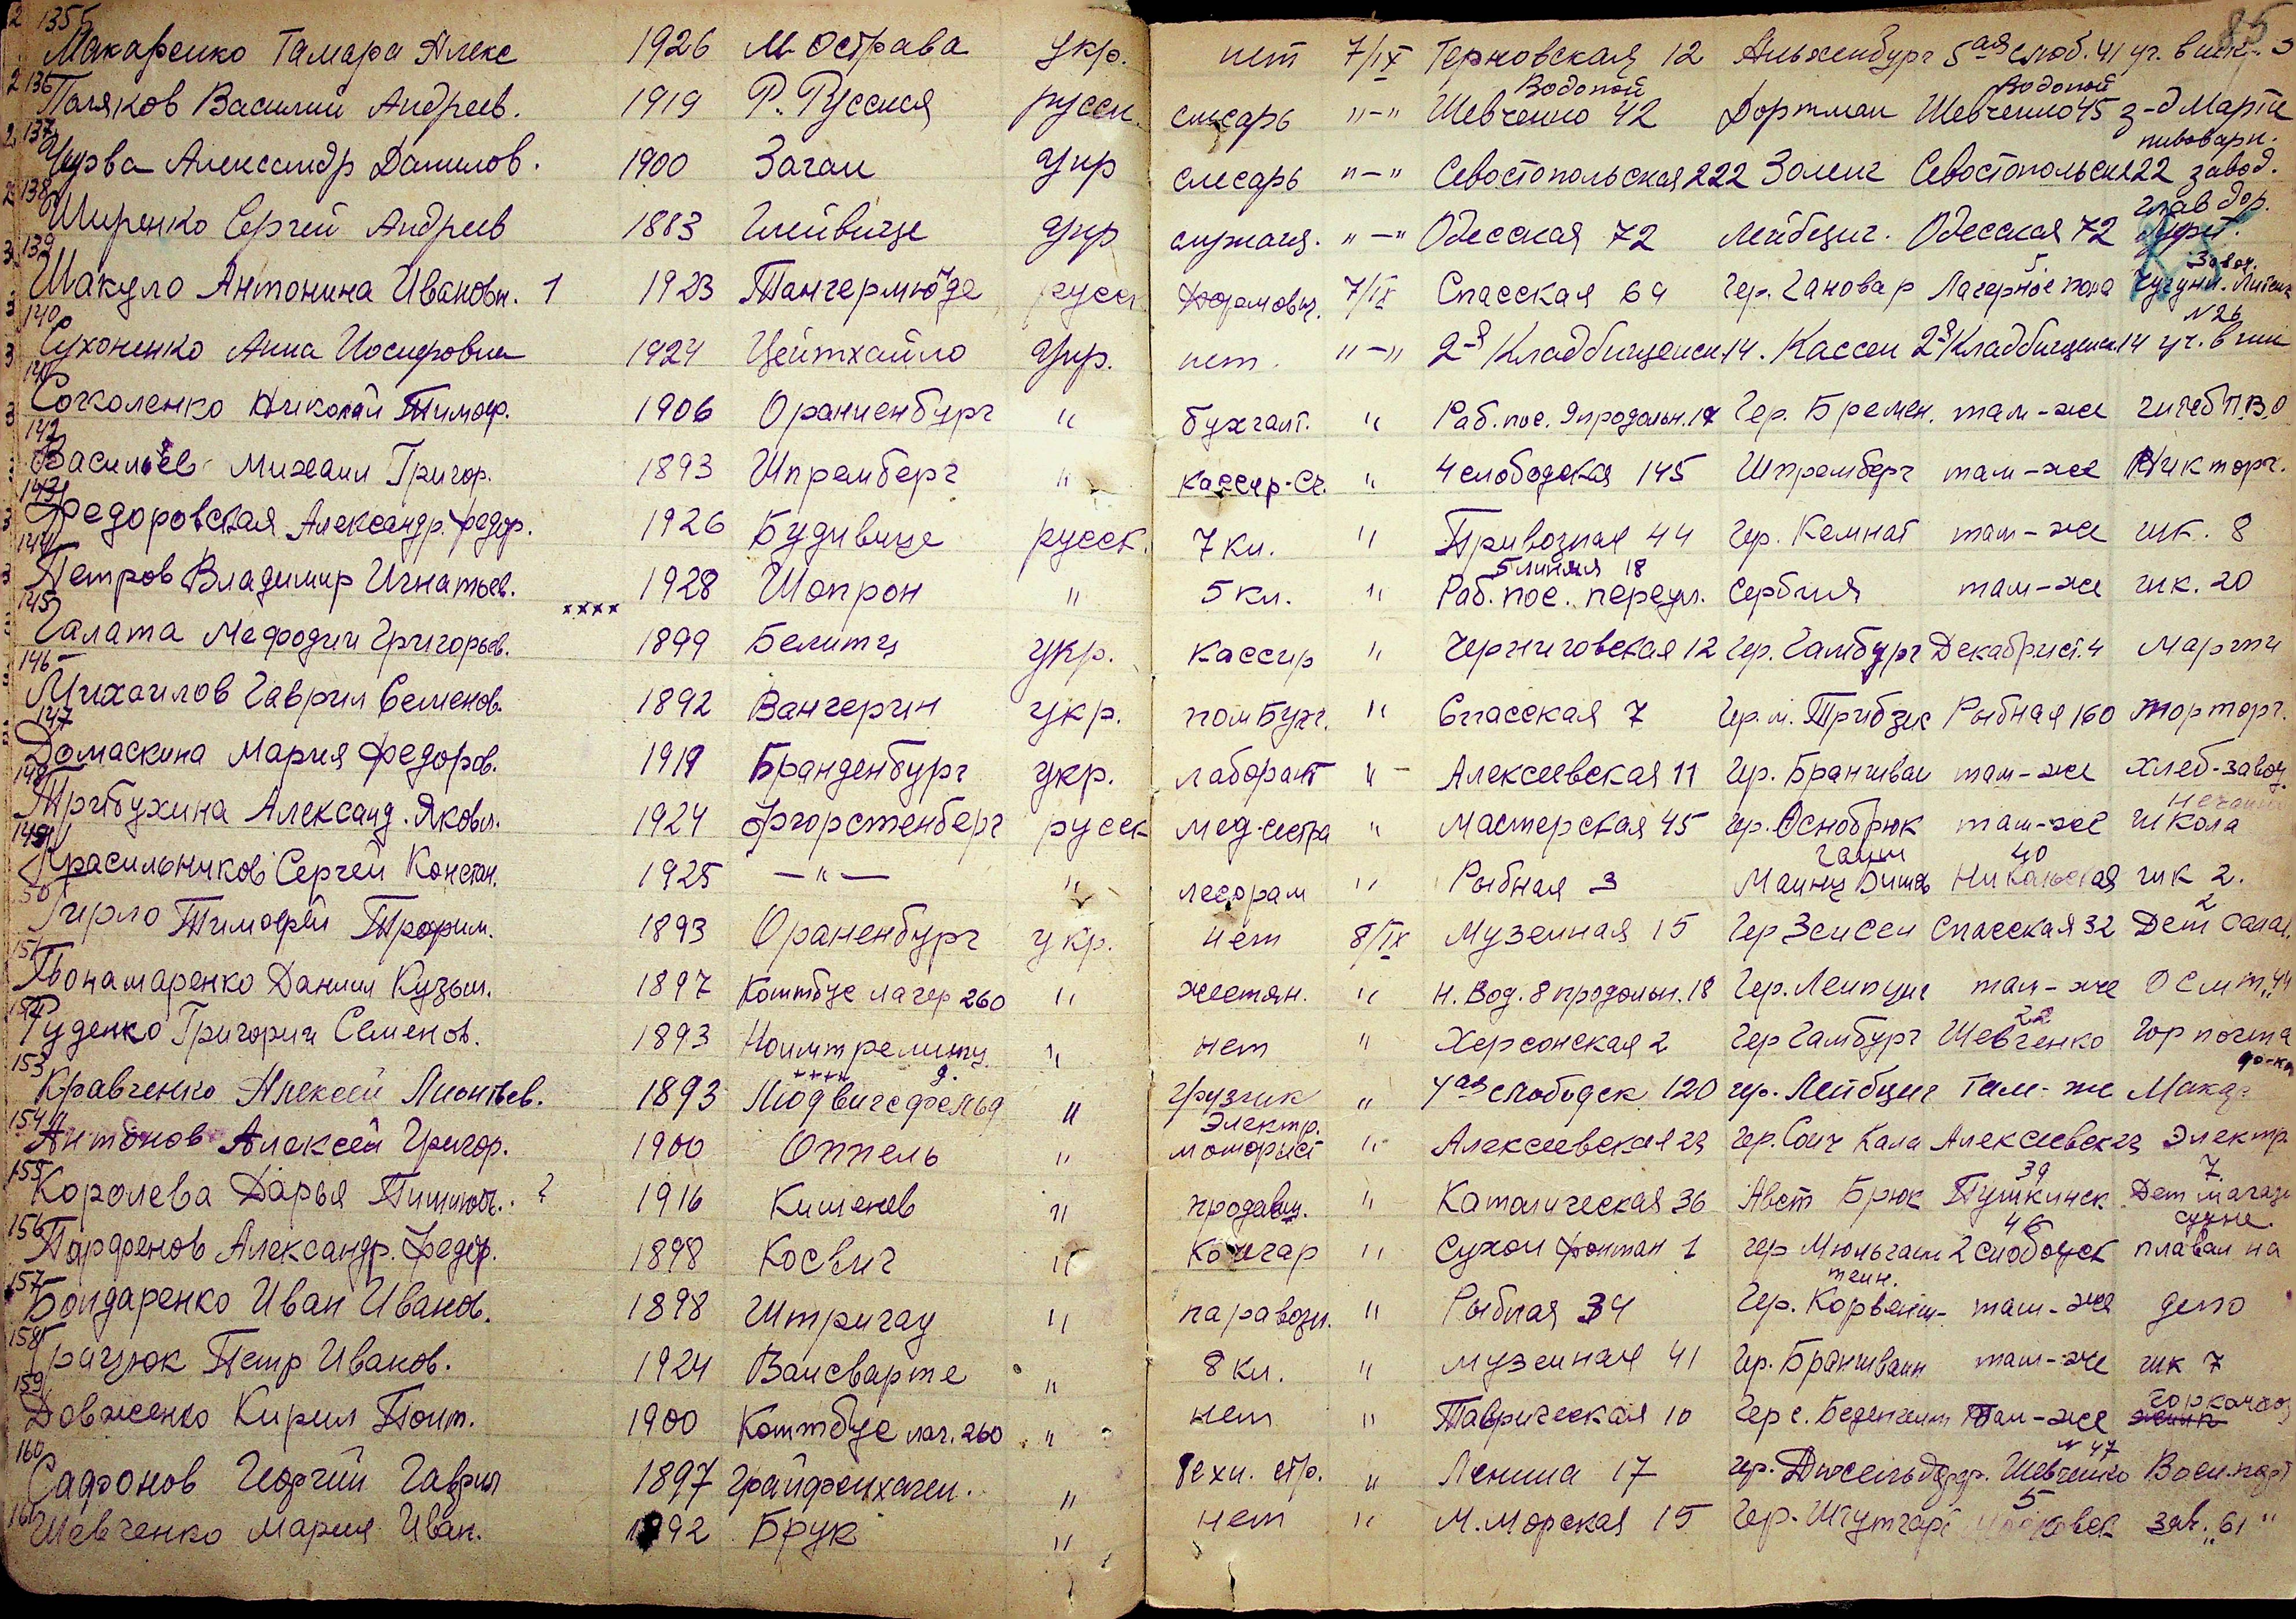 85
1355 Макаренко Тамара Алекс 1926 М. Острава укр. нет 7/IX Терновская 12 Альхенбург 5ая слоб. 41 уч. в шк.
136 Поляков Василий Андреев. 1919 Р. Русская русск. слесарь "-" Водопой Шевченко 42 Дортман Водопой Шевченко 45 з-д Марти
137 Чурва Александр Данилов. 1900 Заган укр слесарь "-" Севостопольская 222 Золинг Севостопольск 222 пивоварн. завод.
138 Ширенко Сергей Андреев 1883 Глейвице укр служащ. "-" Одесская 72 Лейбциг. Одесская 72 глав дор.
139 Шакуло Антонина Ивановн. 1 1923 Тангермюнде русск формовщ. 7/IX Спасская 64 Гер. Гановар Лагерное поле 5 Завод Чугунн. Литейн
140 Сухоненко Анна Иосифовна 1924 Цейтхайло Укр. нет. "-" 2-я Кладбищенск 14. Кассел 2-я Кладбищенск. 14 уч. в шк N 26
141 Соколенко Николай Тимоф. 1906 Ораниенбург " бухгалт. " Раб. пос. 9 продольн. 17 Гер. Бремен. там-же
142 Васильев Михаил Григор. 1893 Шпремберг " кассир-сч. " 4 слободская 145 Шпремберг там-же Ник торг.
143 Федоровская Александр. Федор. 1926 Будивице русск. 7 кл. " Привозная 44 Гер. Кемнат там-же шк. 8
144 Петров Владимир Игнатьев. хххх 1928 Шопрон " 5 кл. " 5 линия 18 Раб. пос. переул. Сербия там-же шк. 20
145 Галата Мефодии Григорьев. 1899 Белитц укр. кассир " Черниговская 12 Гер. Гамбург Декабрист. 4 Марти
146 Михаилов Гаврил Семенов. 1892 Вангерин укр. пом Бухг. " Спасская 7 Гер. м. Трибзис Рыбная 160 торторг.
147 Домаскина Мария Федоров. 1919 Бранденбург укр. лаборант " Алексеевская 11 Гер. Браншваи там-же хлеб-завод.
148 Трибухина Александ. Яковл. 1924 Фюрстенберг русск мед-сестра " Мастерская 45 Гер. Оснобрюк там-же школа
149 Красильников Сергей Констан. 1925 -"- " лесорам " Рыбная 3 Маинц Бишов гаим Никольская 40 шк 2.
50 Гирло Тимофей Трофим. 1893 Ораненбург укр. нет 8/IX Музейная 15 Гер Зейсен Спасская 32 Дет салат. 2
151 Понамаренко Данил Кузьм. 1897 Коттбус лагер 260 " жестян. " Н. Вод. 8 продольн. 18 Гер. Лейпциг там-же О С М Т "44
152 Руденко Григории Семенов. 1893 Ноимтрелитц " нет " Херсонская 2 Гер Гамбург Шевченко 22 Гор почта
153 Кравченко Алексей Леонтьев. 1893 хххх Людвигсфельд " грузчик " 4ая слободск 120 гер. Лейбциг там-же
154 Антонов Алексей Григор. 1900 Оппель " Электр. моторист " Алексеевская 23 Алексеевск 23 электр
155 Королева Дарья 1916 Кишенев " продавщ. " Католическая 36 Авст Брюк Пушкинск 39 Дет магаз 7
156 Парфенов Александр. Федор. 1898 Косвиг " кочегар " Сухой фонтан 1 гер Мюльгаим 2 слободск 46 плавал на судне.
157 Бондаренко Иван Иванов. 1898 Штригау " паравозн. " Рыбная 34 Гер. Корвеш- теин. там-же депо
158 Грацюк Петр Иванов. 1924 Ваисварте " 8 кл. " Музеиная 41 Гер. Браншваин там-же шк 7
159 Довженко Кирил 1900 Коттбус лаг. 260 " нет " Таврическая 10 там-же Горкомхоз
160 Сафонов Георгий Гаврил 1897 Грайфенхаген. " техн. стр. " Ленина 17 гер. Дюсельдорф. Шевченко N 47 Воен. порт
161 Шевченко Мария Иван. 1892 Брук " нет " М. Морская 15 Гер. Штутгарт 5 зав. "61"